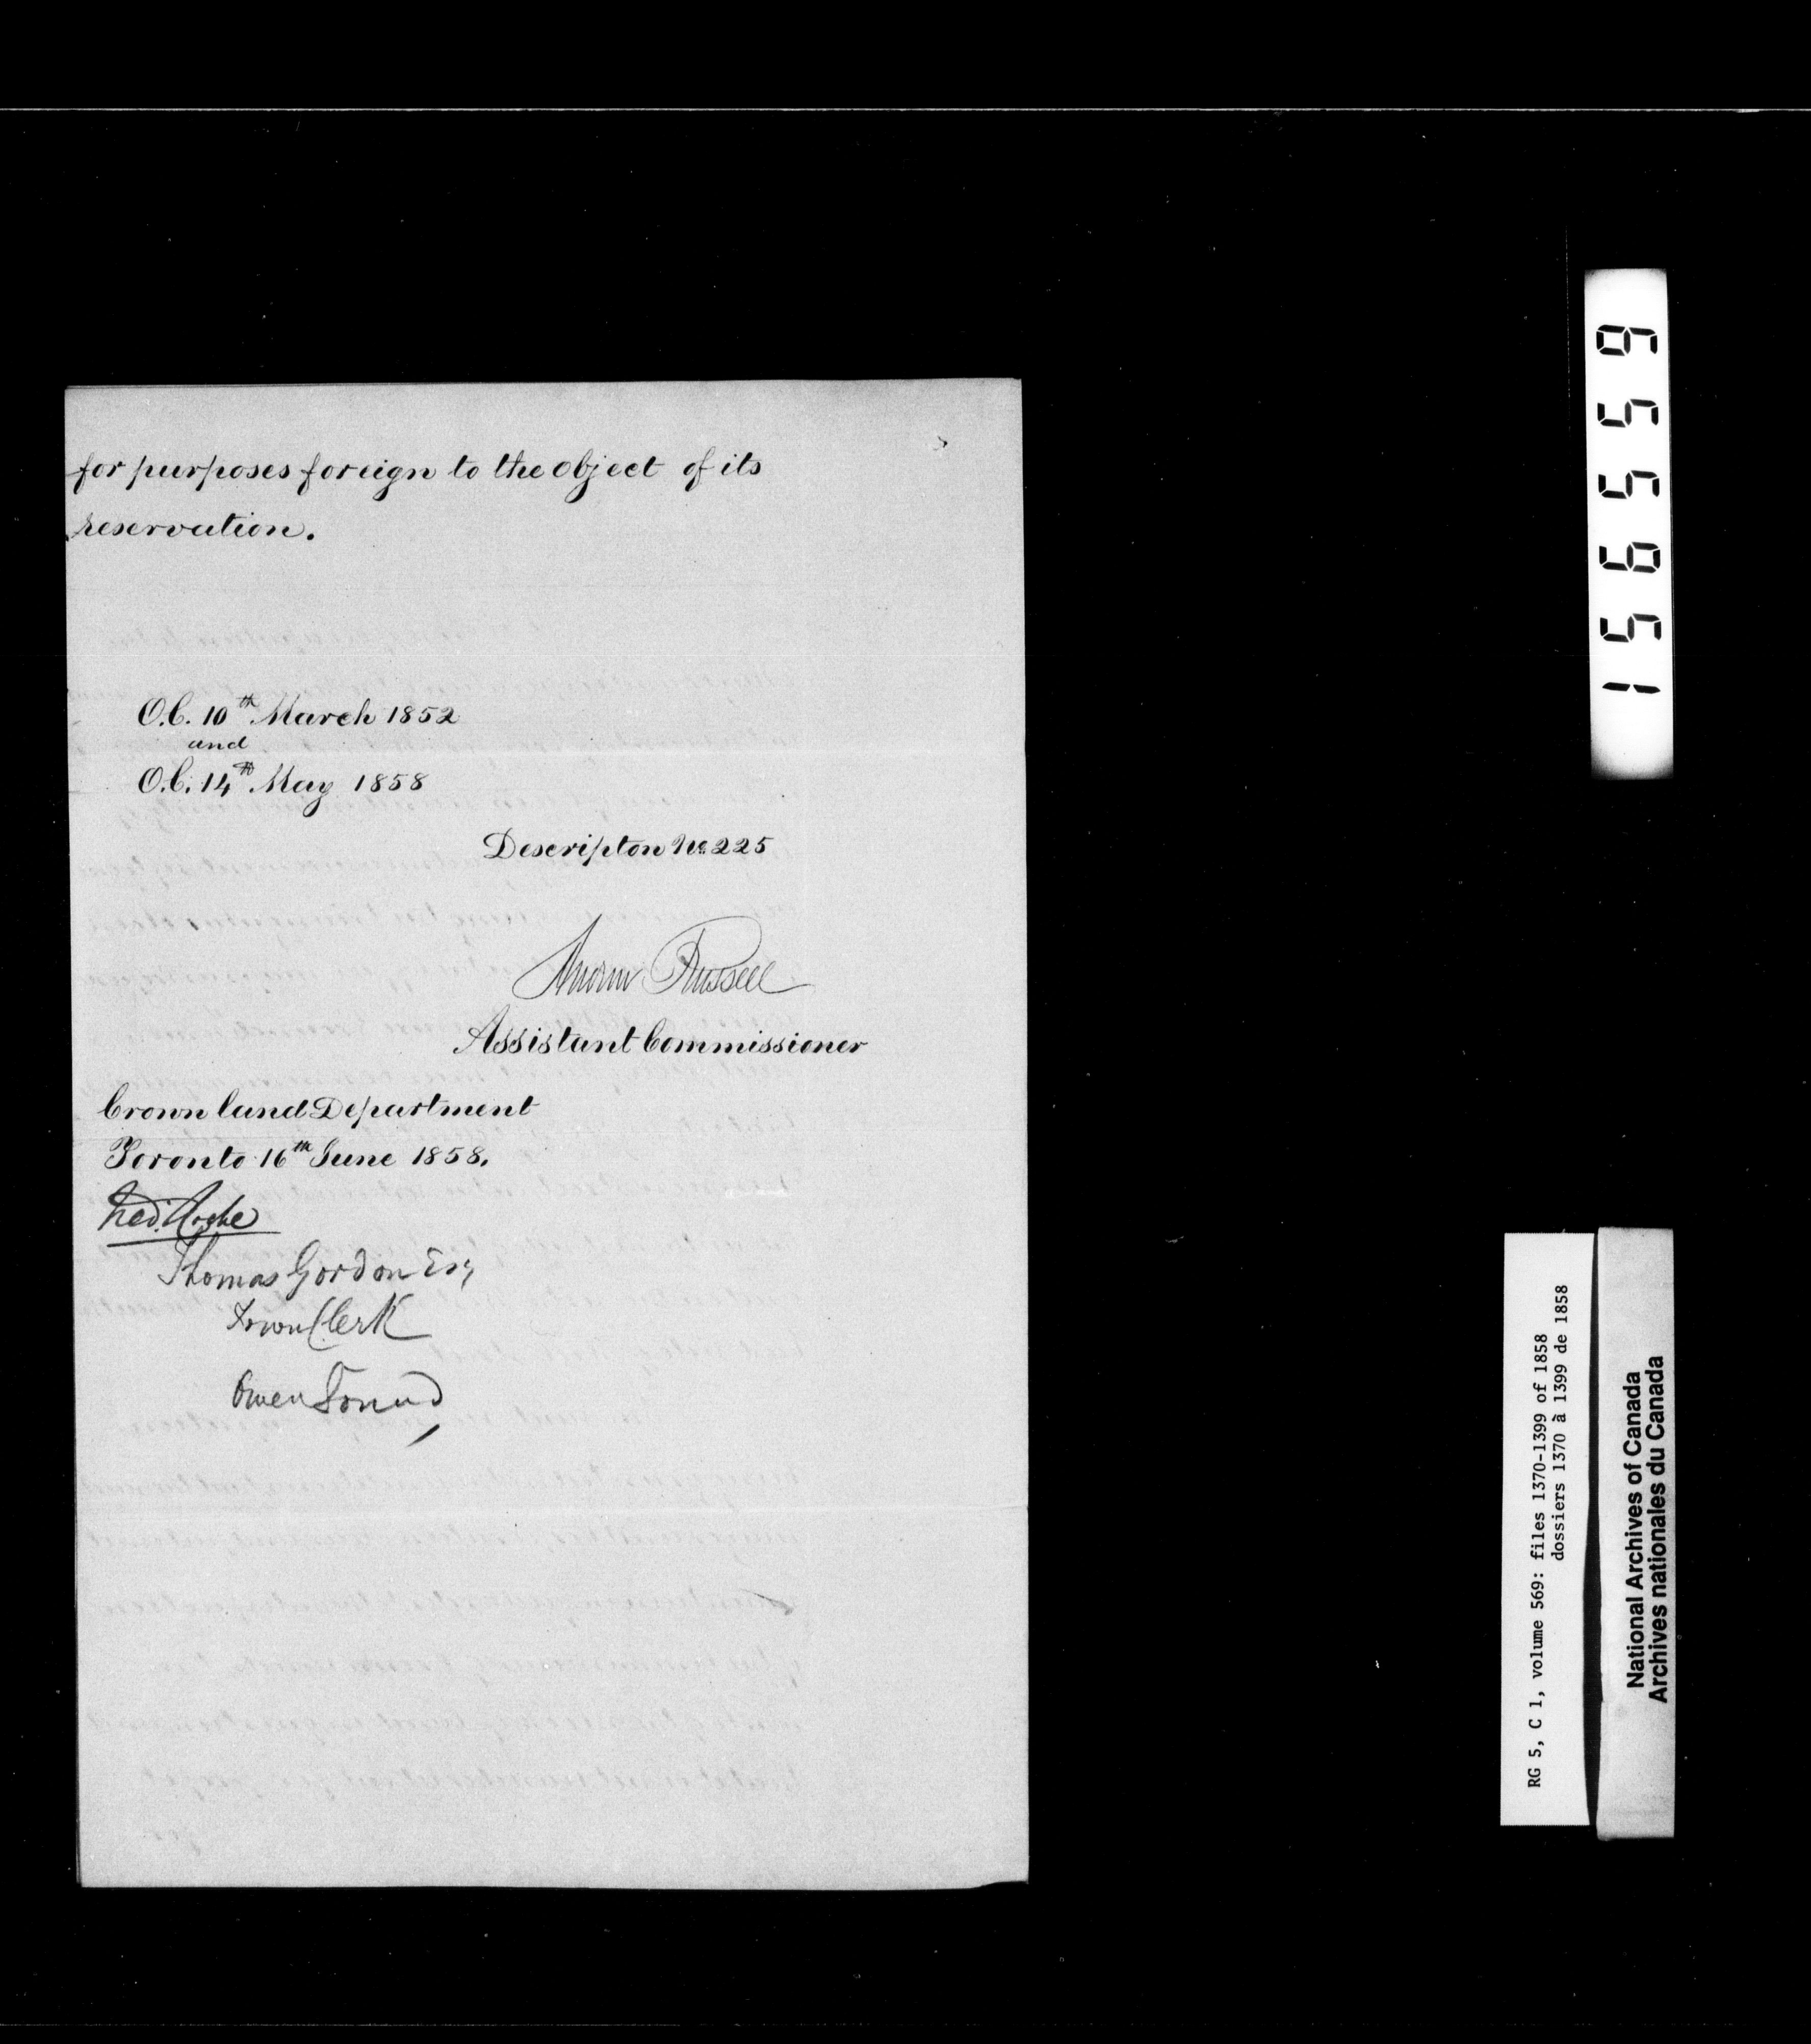 for purposes foreign to the object of its
reservation.
O.C. 10th March 1852
and
O.C. 14th May 1858
Descripton No. 225
Andrew Russell
Assistant Commissioner
Crown land Department
Toronto 16th June 1858.
Thomas Gordon Esq
Town Clerk
Owen Sound
156559
RG 5, C 1, volume 569: files 1370-1399 of 1858
dossiers 1370 à 1399 de 1858
National Archives of Canada
Archives nationales du Canada